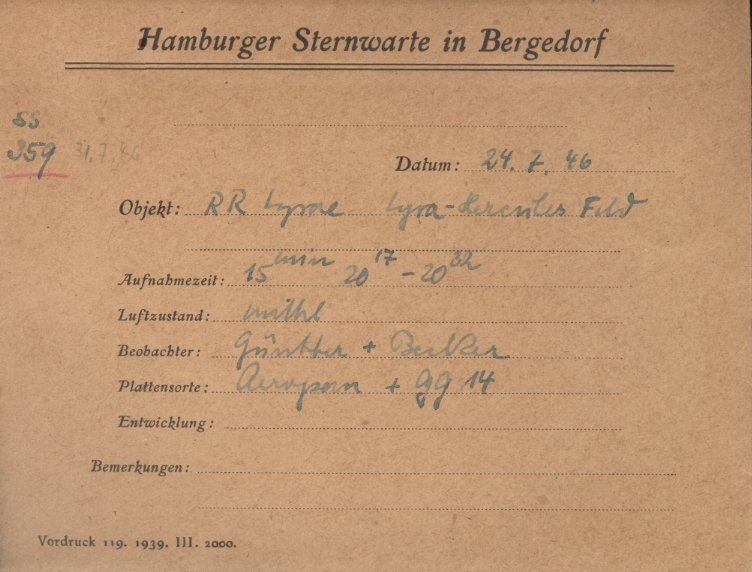 Hamburger Sternwarte in Bergedorf
SS
359 31.7.46
Datum: 24. 7. 46
Objekt: RR Lyrae Lyra-Hercules Feld
Aufnahmezeit: 15 min 20 17 - 20 32
Luftzustand: mittel
Beobachter: Günther +
Plattensorte: Aeropan + gg 14
Entwicklung:
Bemerkungen:
Vordruck 119. 1939. III. 2000.